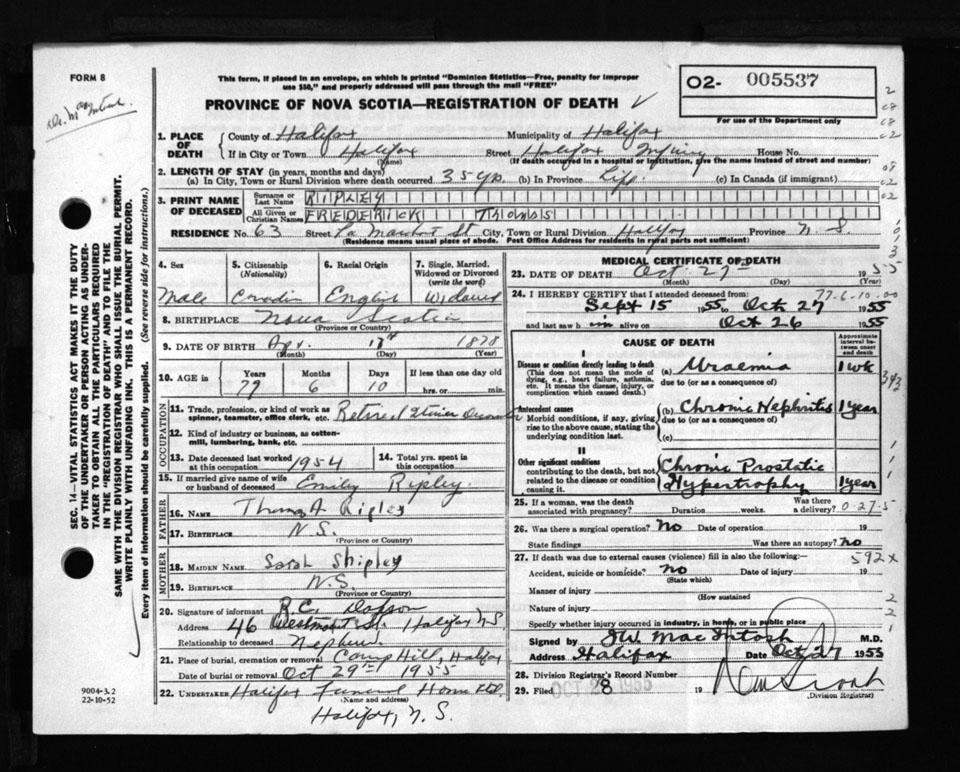 FORM 8
This form, if placed in an envelope, on which is printed "Dominion Statistics—Free, penalty for improper
use $50," and properly addressed will pass through the mail "FREE"
O2- 005537
PROVINCE OF NOVA SCOTIA—REGISTRATION OF DEATH
For use of the Department only
1. PLACE OF DEATH
County of Halifax Municipality of Halifax
If in City or Town Halifax Street Halifax Infirmary House No.
(Name) (If death occurred in a hospital or institution, give the name instead of street and number)
2. LENGTH OF STAY (in years, months and days)
(a) In City, Town or Rural Division where death occurred 35 yrs. (b) In Province Life (c) In Canada (if immigrant)
3. PRINT NAME OF DECEASED
Surname or Last Name RIPLEY
All Given or Christian Names FREDERICK THOMAS
RESIDENCE No. 63 Street La Marchant St City, Town or Rural Division Halifax Province N.S.
(Residence means usual place of abode. Post Office Address for residents in rural parts not sufficient)
SEC. 14—VITAL STATISTICS ACT MAKES IT THE DUTY
OF THE UNDERTAKER OR PERSON ACTING AS UNDER-
TAKER TO OBTAIN ALL THE PARTICULARS REQUIRED
IN THE "REGISTRATION OF DEATH" AND TO FILE THE
SAME WITH THE DIVISION REGISTRAR WHO SHALL ISSUE THE BURIAL PERMIT.
WRITE PLAINLY WITH UNFADING INK. THIS IS A PERMANENT RECORD.
Every item of information should be carefully supplied. (See reverse side for instructions.)
4. Sex
Male
5. Citizenship
(Nationality)
Canadian
6. Racial Origin
English
7. Single, Married, Widowed or Divorced
(write the word)
Widowed
8. BIRTHPLACE Nova Scotia
(Province or Country)
9. DATE OF BIRTH Apr. 17th 1878
(Month) (Day) (Year)
10. AGE in Years Months Days If less than one day old
77 6 10 hrs. or min.
OCCUPATION
11. Trade, profession, or kind of work as
spinner, teamster, office clerk, etc. Retired
12. Kind of industry or business, as cotton-
mill, lumbering, bank, etc.
13. Date deceased last worked
at this occupation 1954
14. Total yrs. spent in
this occupation
15. If married give name of wife
or husband of deceased Emily Ripley
FATHER
16. NAME Thomas A Ripley
17. BIRTHPLACE N.S.
(Province or Country)
MOTHER
18. MAIDEN NAME Sarah Shipley
19. BIRTHPLACE N.S.
(Province or Country)
20. Signature of informant R.C. Dobson
Address 46 Westmount St. Halifax N.S.
Relationship to deceased Nephew
21. Place of burial, cremation or removal Camp Hill, Halifax
Date of burial or removal Oct 29th 1955
22. UNDERTAKER Halifax Funeral Home Ltd.
(Name and address)
Halifax, N.S.
9004-3.2
22-10-52
MEDICAL CERTIFICATE OF DEATH
23. DATE OF DEATH Oct 27th 1955
(Month) (Day) (Year)
77-6-10-00
24. I HEREBY CERTIFY that I attended deceased from:
Sept 15 1955 to Oct 27 1955
and last saw h im alive on Oct 26 1955
CAUSE OF DEATH
Approximate interval between onset and death
I
Disease or condition directly leading to death
(This does not mean the mode of
dying, e.g., heart failure, asthenia,
etc. It means the disease, injury, or
complication which caused death.)
(a) Uraemia 1 wk
due to (or as a consequence of)
343
Antecedent causes
Morbid conditions, if any, giving
rise to the above cause, stating the
underlying condition last.
(b) Chronic Nephritis 1 year
due to (or as a consequence of)
(c)
II
Other significant conditions
contributing to the death, but not
related to the disease or condition
causing it.
Chronic Prostatic
Hypertrophy 1 year
25. If a woman, was the death
associated with pregnancy? Duration weeks. Was there a delivery?
0-27-5
26. Was there a surgical operation? No Date of operation 19
State findings Was there an autopsy? no
27. If death was due to external causes (violence) fill in also the following:—
592x
Accident, suicide or homicide? No Date of injury 19
(State which)
Manner of injury
(How sustained
Nature of injury
Specify whether injury occurred in industry, in home, or in public place
Signed by JW MacIntosh M.D.
Address Halifax Date Oct 27 1955
28. Division Registrar's Record Number
29. Filed OCT 28 1955 19
(Division Registrar)